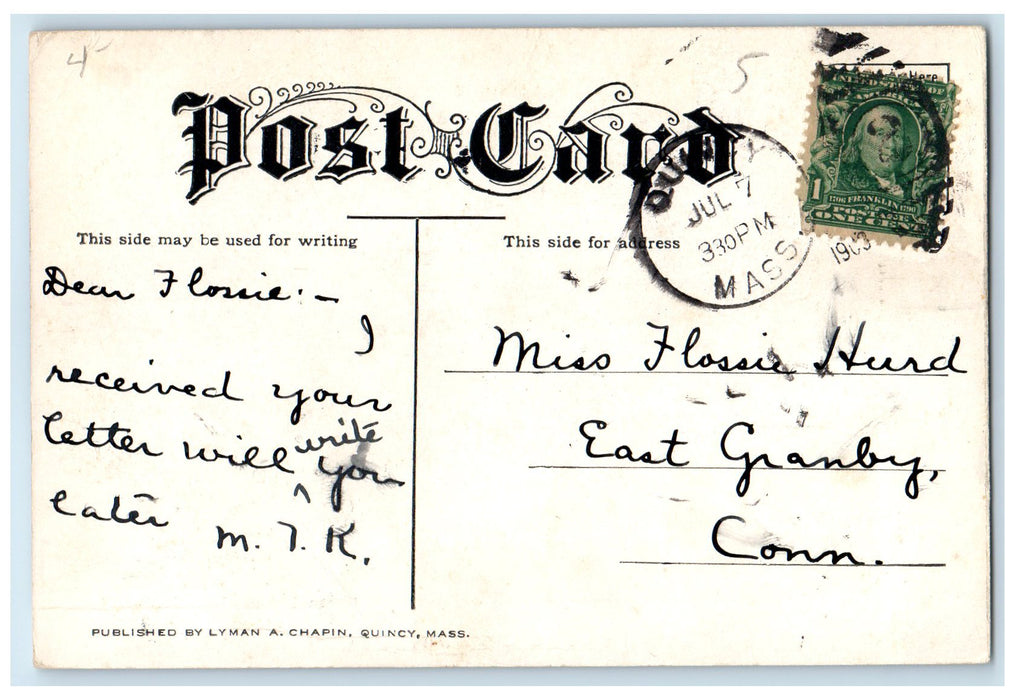 4
5
Post Card
Here
QUINCY
JUL 7
330PM
MASS.
1
1706 FRANKLIN 1790
POSTAGE
ONE CENT
This side may be used for writing
This side for address
Dear Flossie:—
I
received your
letter will write you
^
later
M. T. K.
Miss Flossie Hurd
East Granby,
Conn.
PUBLISHED BY LYMAN A. CHAPIN, QUINCY, MASS.